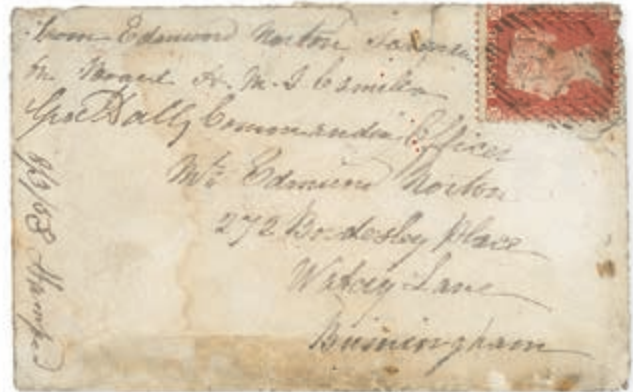 From Edmund Norton Seaman
on Board H. M. S Camilla
Geo Colby Commanding Officer
Mr Edmund Norton
272 Bordesley Place
Watery Lane
Birmingham